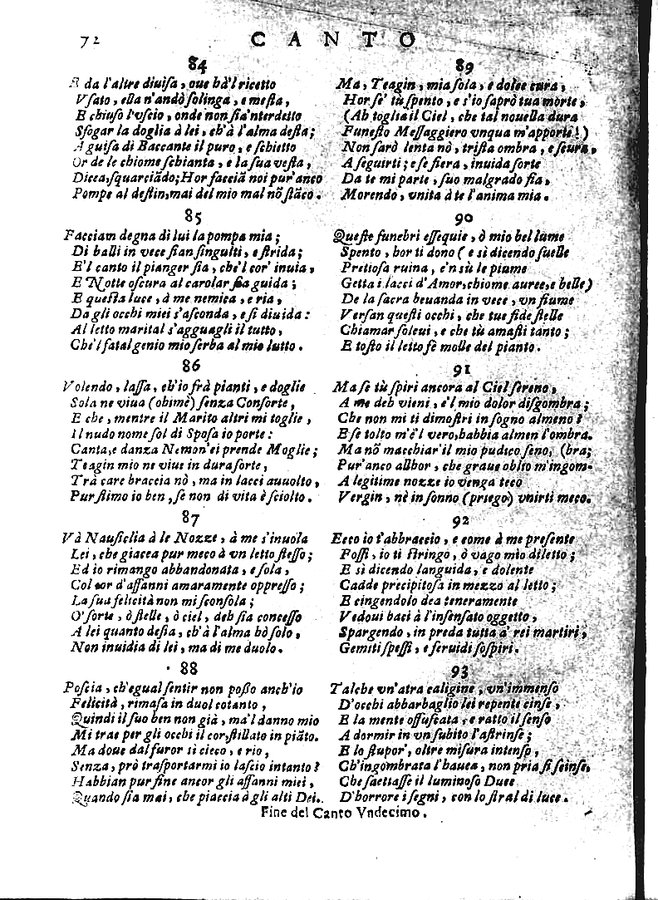 72 CANTO
84
E da l'altre diuisa, oue hà'l ricetto
Vsato, ella n'andò solinga, e mesta,
E chiuso l'vscio, onde non sia'nterdetto
Sfogar la doglia à lei, ch'à l'alma desta;
A guisa di Baccante il puro, e schietto
Or de le chiome schianta, e la sua vesta,
Dicea, squarciãdo; Hor facciã noi pur'anco
Pompe al destin, mai del mio mal nõ stãco.
85
Facciam degna di lui la pompa mia;
Di balli in vece sian singulti, e strida;
E'l canto il pianger sia, che'l cor' inuia,
E Notte oscura al carolar sia guida;
E questa luce, à me nemica, e ria,
Da gli occhi miei s'asconda, e si diuida:
Al letto marital s'agguagli il tutto,
Che'l fatal genio mio serba al mio lutto.
86
Volendo, lassa, ch'io frà pianti, e doglie
Sola ne viua (ohimè) senza Consorte,
E che, mentre il Marito altri mi toglie,
Il nudo nome sol di Sposa io porte:
Canta, e danza Nemon' ei prende Moglie;
Teagin mio ne viue in dura sorte,
Trà care braccia nò, ma in lacci auuolto,
Pur stimo io ben, se non di vita è sciolto.
87
Và Nausiclia à le Nozze, à me s'inuola
Lei, che giacea pur meco à vn letto stesso;
Ed io rimango abbandonata, e sola,
Col cor d'affanni amaramente oppresso;
La sua felicità non mi consola;
O' sorte, ò stelle, ò ciel, deh sia concesso
A lei quanto desia, ch'à l'alma hò solo,
Non inuidia di lei, ma di me duolo.
88
Poscia, ch'egual sentir non posso anch'io
Felicità, rimasa in duol cotanto,
Quindi il suo ben non già, ma'l danno mio
Mi trae per gli occhi il cor, stillato in piãto.
Ma doue dal furor ti cieco, e rio,
Senza, prò trasportarmi io lascio intanto?
Habbian pur fine ancor gli affanni miei,
Quando sia mai, che piaccia à gli alti Dei.
89
Ma, Teagin, mia sola, e dolce cura,
Hor se' tù spento, e s'io saprò tua morte,
(Ah toglia il Ciel, che tal nouella dura
Funesto Messaggiero vnqua m'apporti!)
Non sarò lenta nò, trista ombra, e scura,
A seguirti; e se fiera, inuida sorte
Da te mi parte, suo malgrado fia,
Morendo, vnita à te l'anima mia.
90
Queste funebri essequie, ò mio bel lume
Spento, hor ti dono (e sì dicendo suelle
Pretiosa ruina, e'n sù le piume
Getta i lacci d'Amor, chiome auree, e belle)
De la sacra beuanda in vece, vn fiume
Versan questi occhi, che tue fide stelle
Chiamar soleui, e che tù amasti tanto;
E tosto il letto fè molle del pianto.
91
Ma se tù spiri ancora al Ciel sereno,
A me deh vieni, e'l mio dolor disgombra;
Che non mi ti dimostri in sogno almeno?
E se tolto m'è'l vero, habbia almen l'ombra.
Ma nõ macchiar'il mio pudico seno, (bra;
Pur'anco allhor, che graue oblio m'ingom-
A legitime nozze io venga teco
Vergin, nè in sonno (priego) vnirti meco.
92
Ecco io t'abbraccio, e come à me presente
Fossi, io ti stringo, ò vago mio diletto;
E sì dicendo languida, e dolente
Cadde precipitosa in mezzo al letto;
E cingendolo dea teneramente
Vedoui baci à l'insensato oggetto,
Spargendo, in preda tutta à rei martiri,
Gemiti spessi, e feruidi sospiri.
93
Talche vn'atra caligine, vn'immenso
D'occhi abbarbaglio lei repente cinse,
E la mente offuscata, e ratto il senso
A dormir in vn subito l'astrinse;
E lo stupor, oltre misura intenso,
Ch'ingombrata l'hauea, non pria si scinse,
Che saettasse il luminoso Duce
D'horrore i segni, con lo stral di luce.
Fine del Canto Vndecimo.